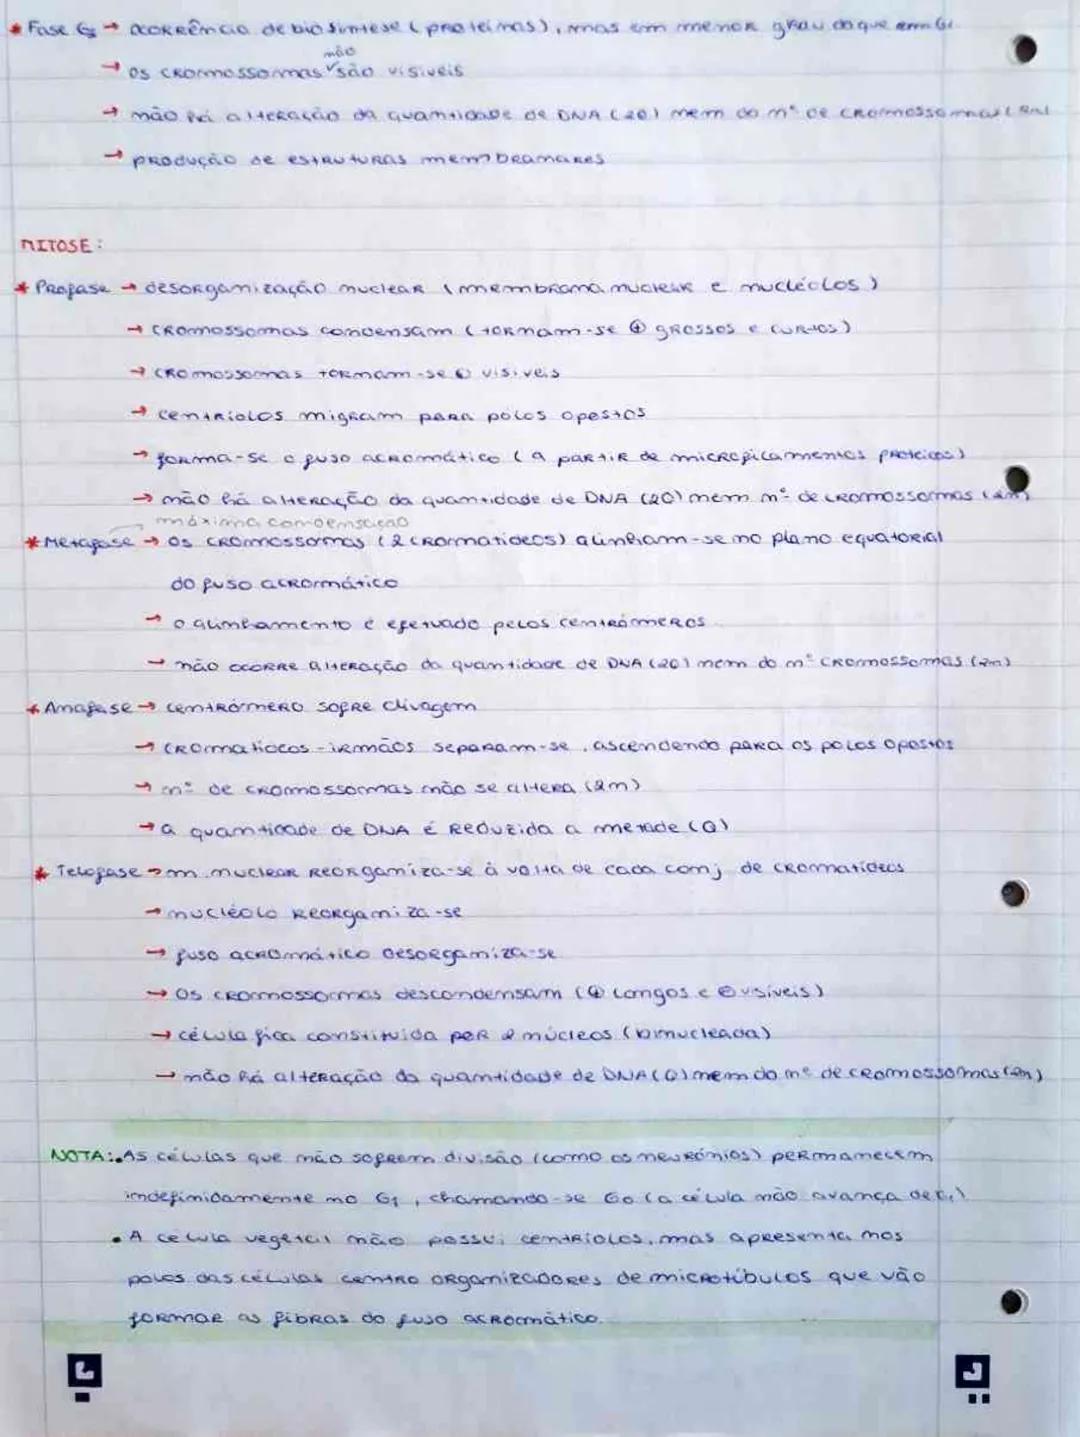 * Fase G2 → ocorrência de biossíntese (proteínas), mas em menor grau do que em G1
→ os cromossomas não são visíveis
→ não há alteração da quantidade de DNA (2Q) nem do nº de cromossomas (2n)
→ produção de estruturas membranares
MITOSE:
* Profase → desorganização nuclear (membrana nuclear e nucléolos)
→ cromossomas condensam (tornam-se ⊕ grossos e curtos)
→ cromossomas tornam-se ⊕ visíveis
→ centríolos migram para pólos opostos
→ forma-se o fuso acromático (a partir de microfilamentos proteicos)
→ não há alteração da quantidade de DNA (2Q) nem nº de cromossomas (2n)
máxima condensação
* Metafase → os cromossomas (2 cromatídeos) alinham-se no plano equatorial
do fuso acromático
→ o alinhamento é efetuado pelos centrómeros
→ não ocorre alteração da quantidade de DNA (2Q) nem do nº cromossomas (2n)
* Anafase → centrómero sofre clivagem
→ cromatídeos-irmãos separam-se, ascendendo para os polos opostos
→ nº de cromossomas não se altera (2n)
→ a quantidade de DNA é reduzida a metade (Q)
* Telofase → m. nuclear reorganiza-se à volta de cada conj de cromatídeos
→ nucléolo reorganiza-se
→ fuso acromático desorganiza-se
→ os cromossomas descondensam (⊕ longos e ⊖ visíveis)
→ célula fica constituída por 2 núcleos (binucleada)
→ não há alteração da quantidade de DNA (Q) nem do nº de cromossomas (2n)
NOTA: • As células que não sofrem divisão (como os neurónios) permanecem
indefinidamente no G1, chamando-se G0 (a célula não avança de G1)
• A célula vegetal não possui centríolos, mas apresenta nos
polos das células centro organizadores de microtúbulos que vão
formar as fibras do fuso acromático.